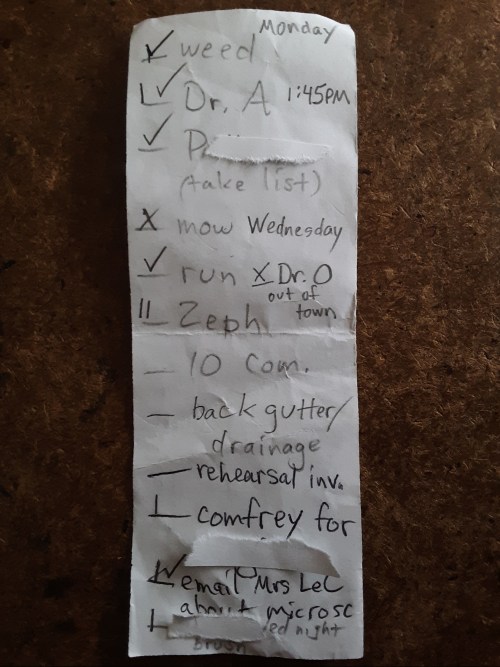 Monday
weed
Dr. A 1:45PM
(take list)
X mow Wednesday
run X Dr. O
out of
town
Zeph
10 Com.
back gutter/
drainage
rehearsal inv.
comfrey for
email Mrs LeC
about microsc
night